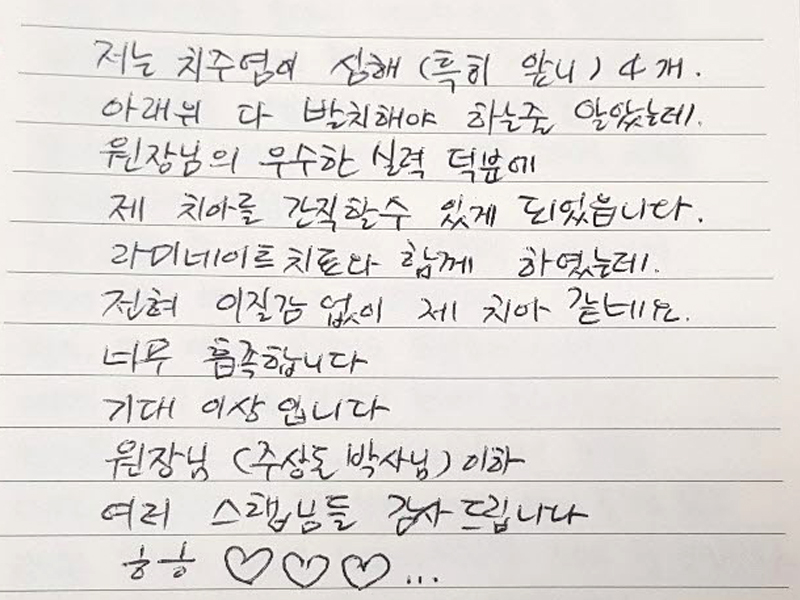 저는 치주염이 심해 (특히 앞니) 4개.
아래위 다 발치해야 하는줄 알았는데.
원장님의 우수한 실력 덕분에
제 치아를 간직할수 있게 되었읍니다.
라미네이트치료다 함께 하였는데.
전혀 이질감 없이 제 치아 같네요.
너무 흡족합니다
기대 이상 입니다
원장님 (주상돈 박사님) 이하
여러 스탭님들 감사드립니다
ㅎㅎ ♡♡♡...